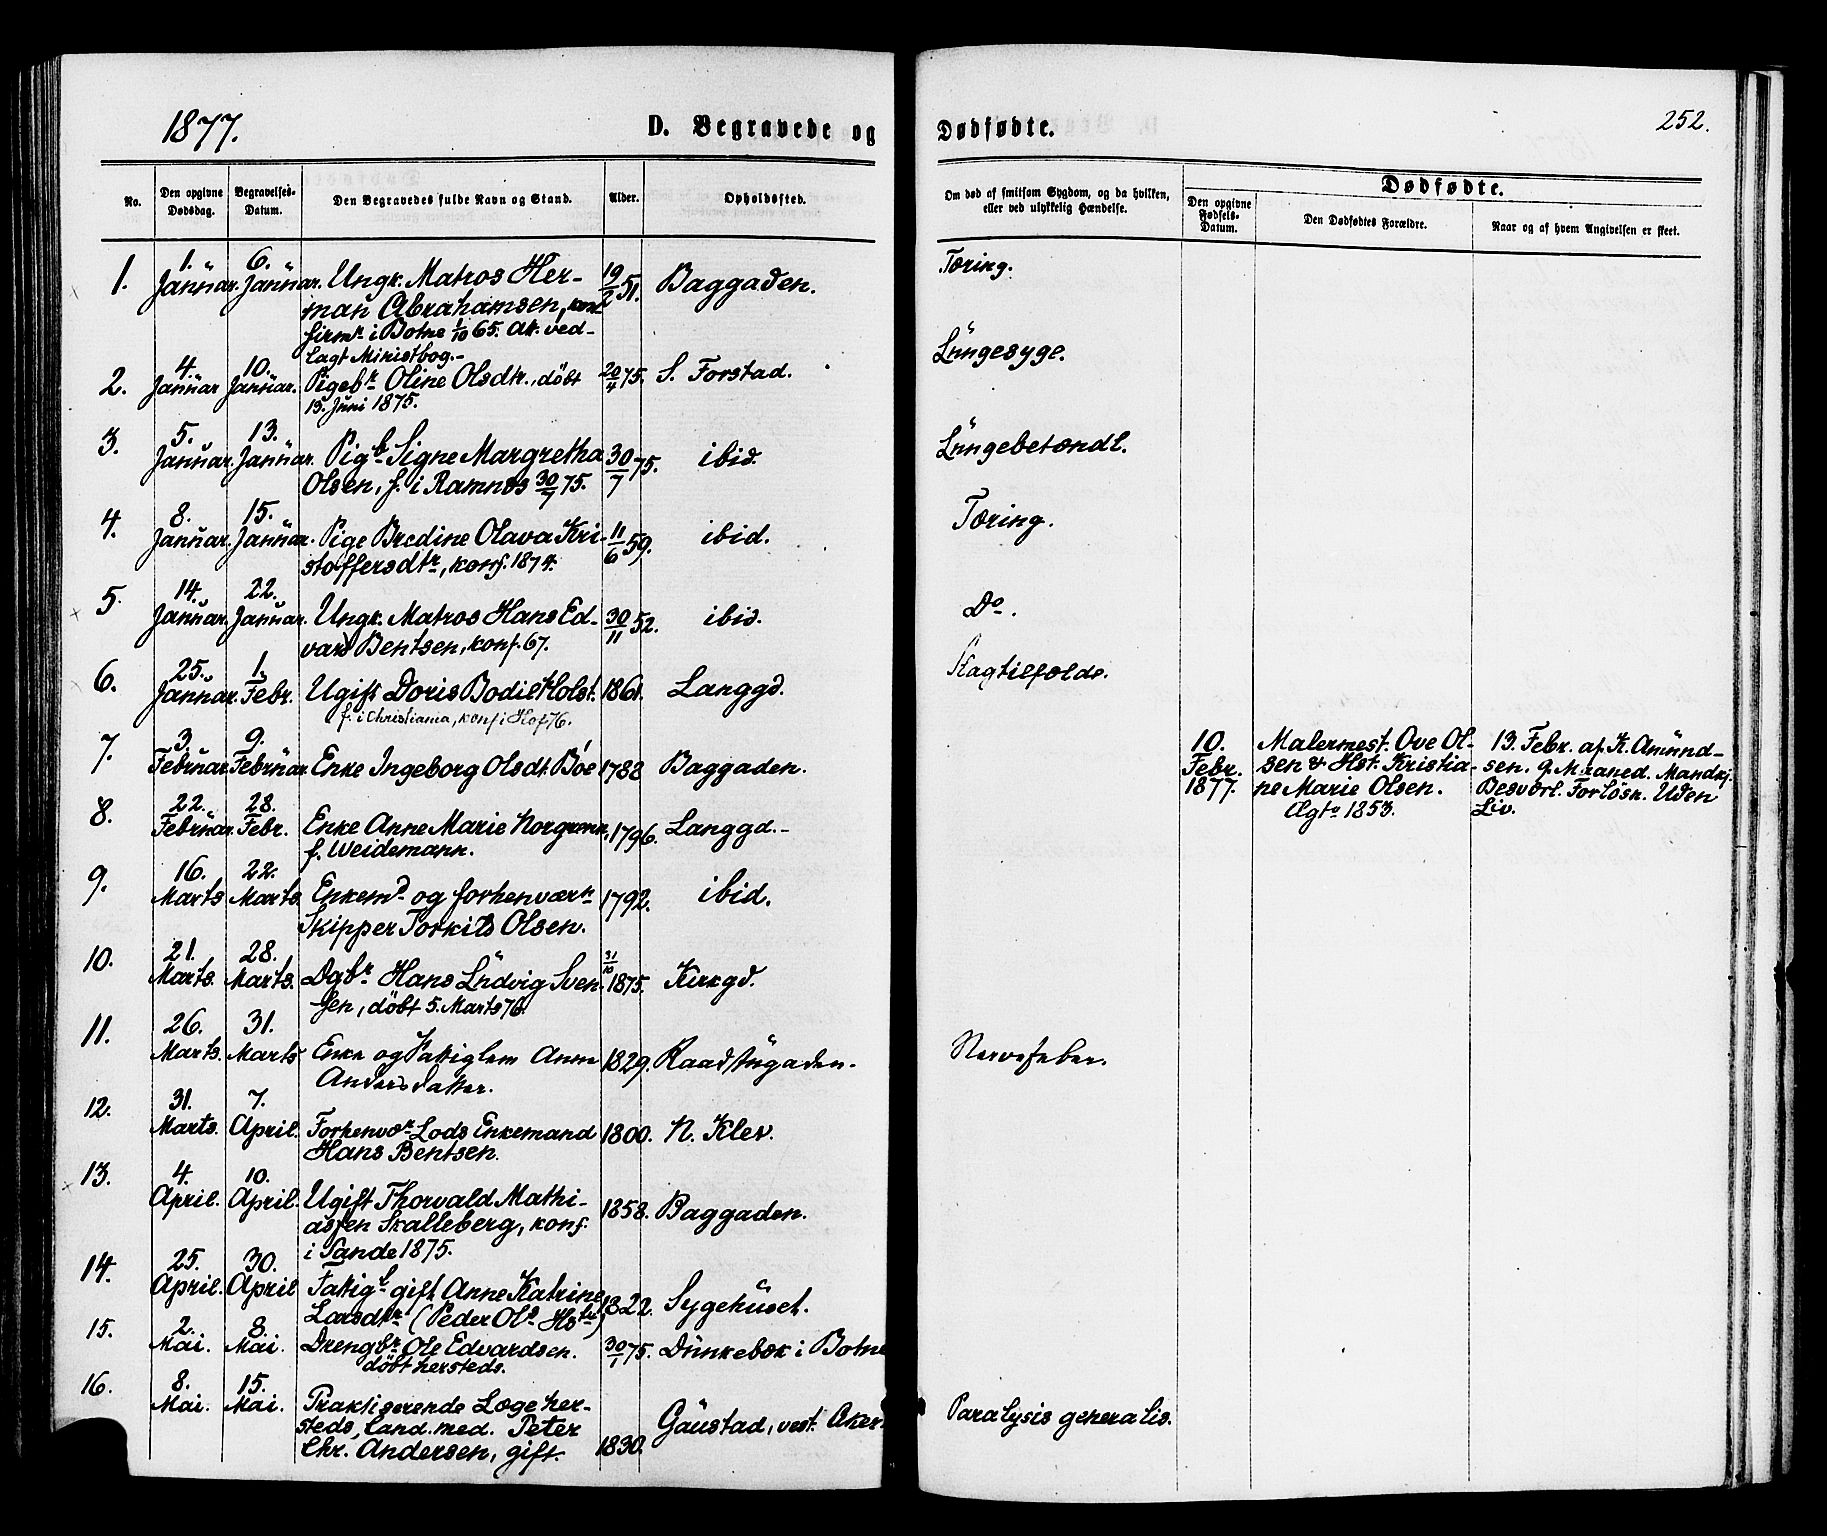 1877.
D. Begravede og
Dødfødte.
252.
No.
Den opgivne Dødsdag.
Begravelses-Datum.
Den Begravedes fulde Navn og Stand.
Alder.
Opholdssted.
Om død af smitsom Sygdom, og da hvilken,
eller ved ulykkelig Hændelse.
Dødfødte.
Den opgivne Fødsels-Datum.
Den Dødfødtes Forældre.
Naar og af hvem Angivelsen er skeet.
1. 1. Januar. 6. Januar. Ungk. Matros Her- 19/2 51. Baggaden. Tæring.
man Abrahamsen, kon
firmr i Botne 1/10 65. At. ved-
lagt Ministbog.-
2. 4. Januar 10. Januar. Pigebr Oline Olsdtr., döbt 20/4 75. S. Forstad. Lungesyge.
13. Juni 1875.
3. 5. Januar. 13. Januar. Pigb Signe Margretha 30/7 75. ibid. Lungebetændl.
Olsen, f. i Ramnes 30/7 75.
4. 8. Januar. 15. Januar. Pige Bredine Olava Kri- 11/6 59. ibid. Tæring.
stoffersdtr, konf. 1874.
5. 14. Januar. 22. Januar. Ungk. Matros Hans Ed- 30/11 52. ibid. Do.
vard Bentsen, konf. 67.
6. 25. Januar. 1. Febr. Ugift Doris Bodil Holst. 1861. Langgd.
f. i Christiania, konf i Hof 76.
7. 3. Februar. 9. Februar. Enke Ingeborg Olsdt. Böe 1788 Baggaden.
10. Febr. 1877.
Malermest. Ove Ol-
sen & Hst. Kristia-
ne Marie Olsen.
Ægto 1853.
13. Febr. af K. Amund-
sen. 9 Maaned. Mandkj.
Besværl. Forlösn. Uden
Liv.
8. 22. Februar. 28. Febr. Enke Anne Marie Norgrenn, 1796. Langgd.-
f. Weidemann.
9. 16. Marts 22. Marts. Enkemd og forhenværn 1792. ibid.
Skipper Torkild Olsen.
10. 21. Marts. 28. Marts. Dgbr Hans Ludvig Sven- 31/10 1875. Kirkgd.
sen, döbt 5. Marts 76.
11. 26. Marts. 31. Marts Enke og Fattiglem Anne 1829. Raadstugaden. Nervefeber.
Andersdatter.
12. 31. Marts. 7. April. Forhenvær Lods Enkemand 1800. N. Klev.
Hans Bentsen.
13. 4. April. 10. April. Ugift Thorvald Mathi- 1858. Baggaden.
assen Skalleberg, konf.
i Sande 1875.
14. 25. April. 30. April Fattigl gift Anne Katrine 1822. Sygehuset.
Larsdtr (Peder Ols Hstru)
15. 2. Mai. 8. Mai. Drengbr Ole Edvardsen. 30/1 75. Dunkebæk i Botne
döbt hersteds.
16. 8. Mai. 15. Mai. Praktiserende Læge her- 1830. Gaustad, vest. Aker. Paralysis generalis.
steds, Cand. med. Peter
Chr. Andersen, gift.